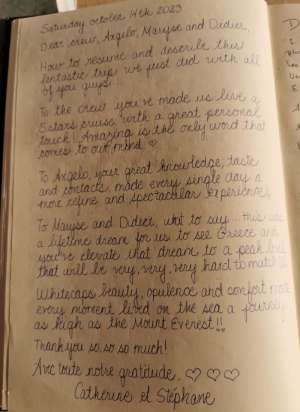 Saturday, october 14th 2023
Dear crew, Angelo, Maryse and Didier,
How to resume and describe this
fantastic trip we just did with all
of you guys!
To the crew you've made us live a
5 stars cruise with a great personal
touch! Amazing is the only word that
comes to our mind ♡
To Angelo, your great knowledge, taste
and contacts, made every single day a
more refine and spectacular experience!
To Maryse and Didier, what to say... this was
a lifetime dream for us to see Greece and
you've elevate that dream to a peak
that will be very, very, very hard to match
Whitecaps beauty, opulence and comfort made
every moment lived on the sea a journey
as high as the Mount Everest!!
Thank you so, so so much!
Avec toute notre gratitude, ♡ ♡ ♡
Catherine et Stéphane